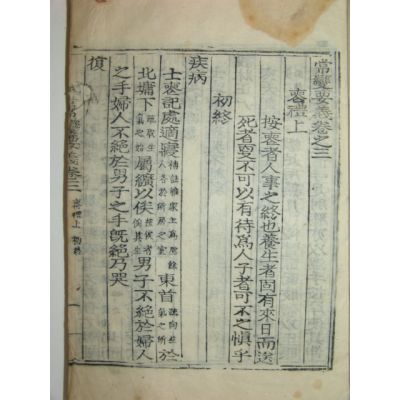 常變要義卷之三
喪禮上
按喪者人事之終也養生者固有來日而送
死者更不可以有待爲人子者可不愼乎
初終
疾病
士喪記處適寢 東首 於
北墉下 屬纊以俟 男子不絶於婦人
之手婦人不絶於男子之手旣絶乃哭
復
卷三 喪禮上 初終